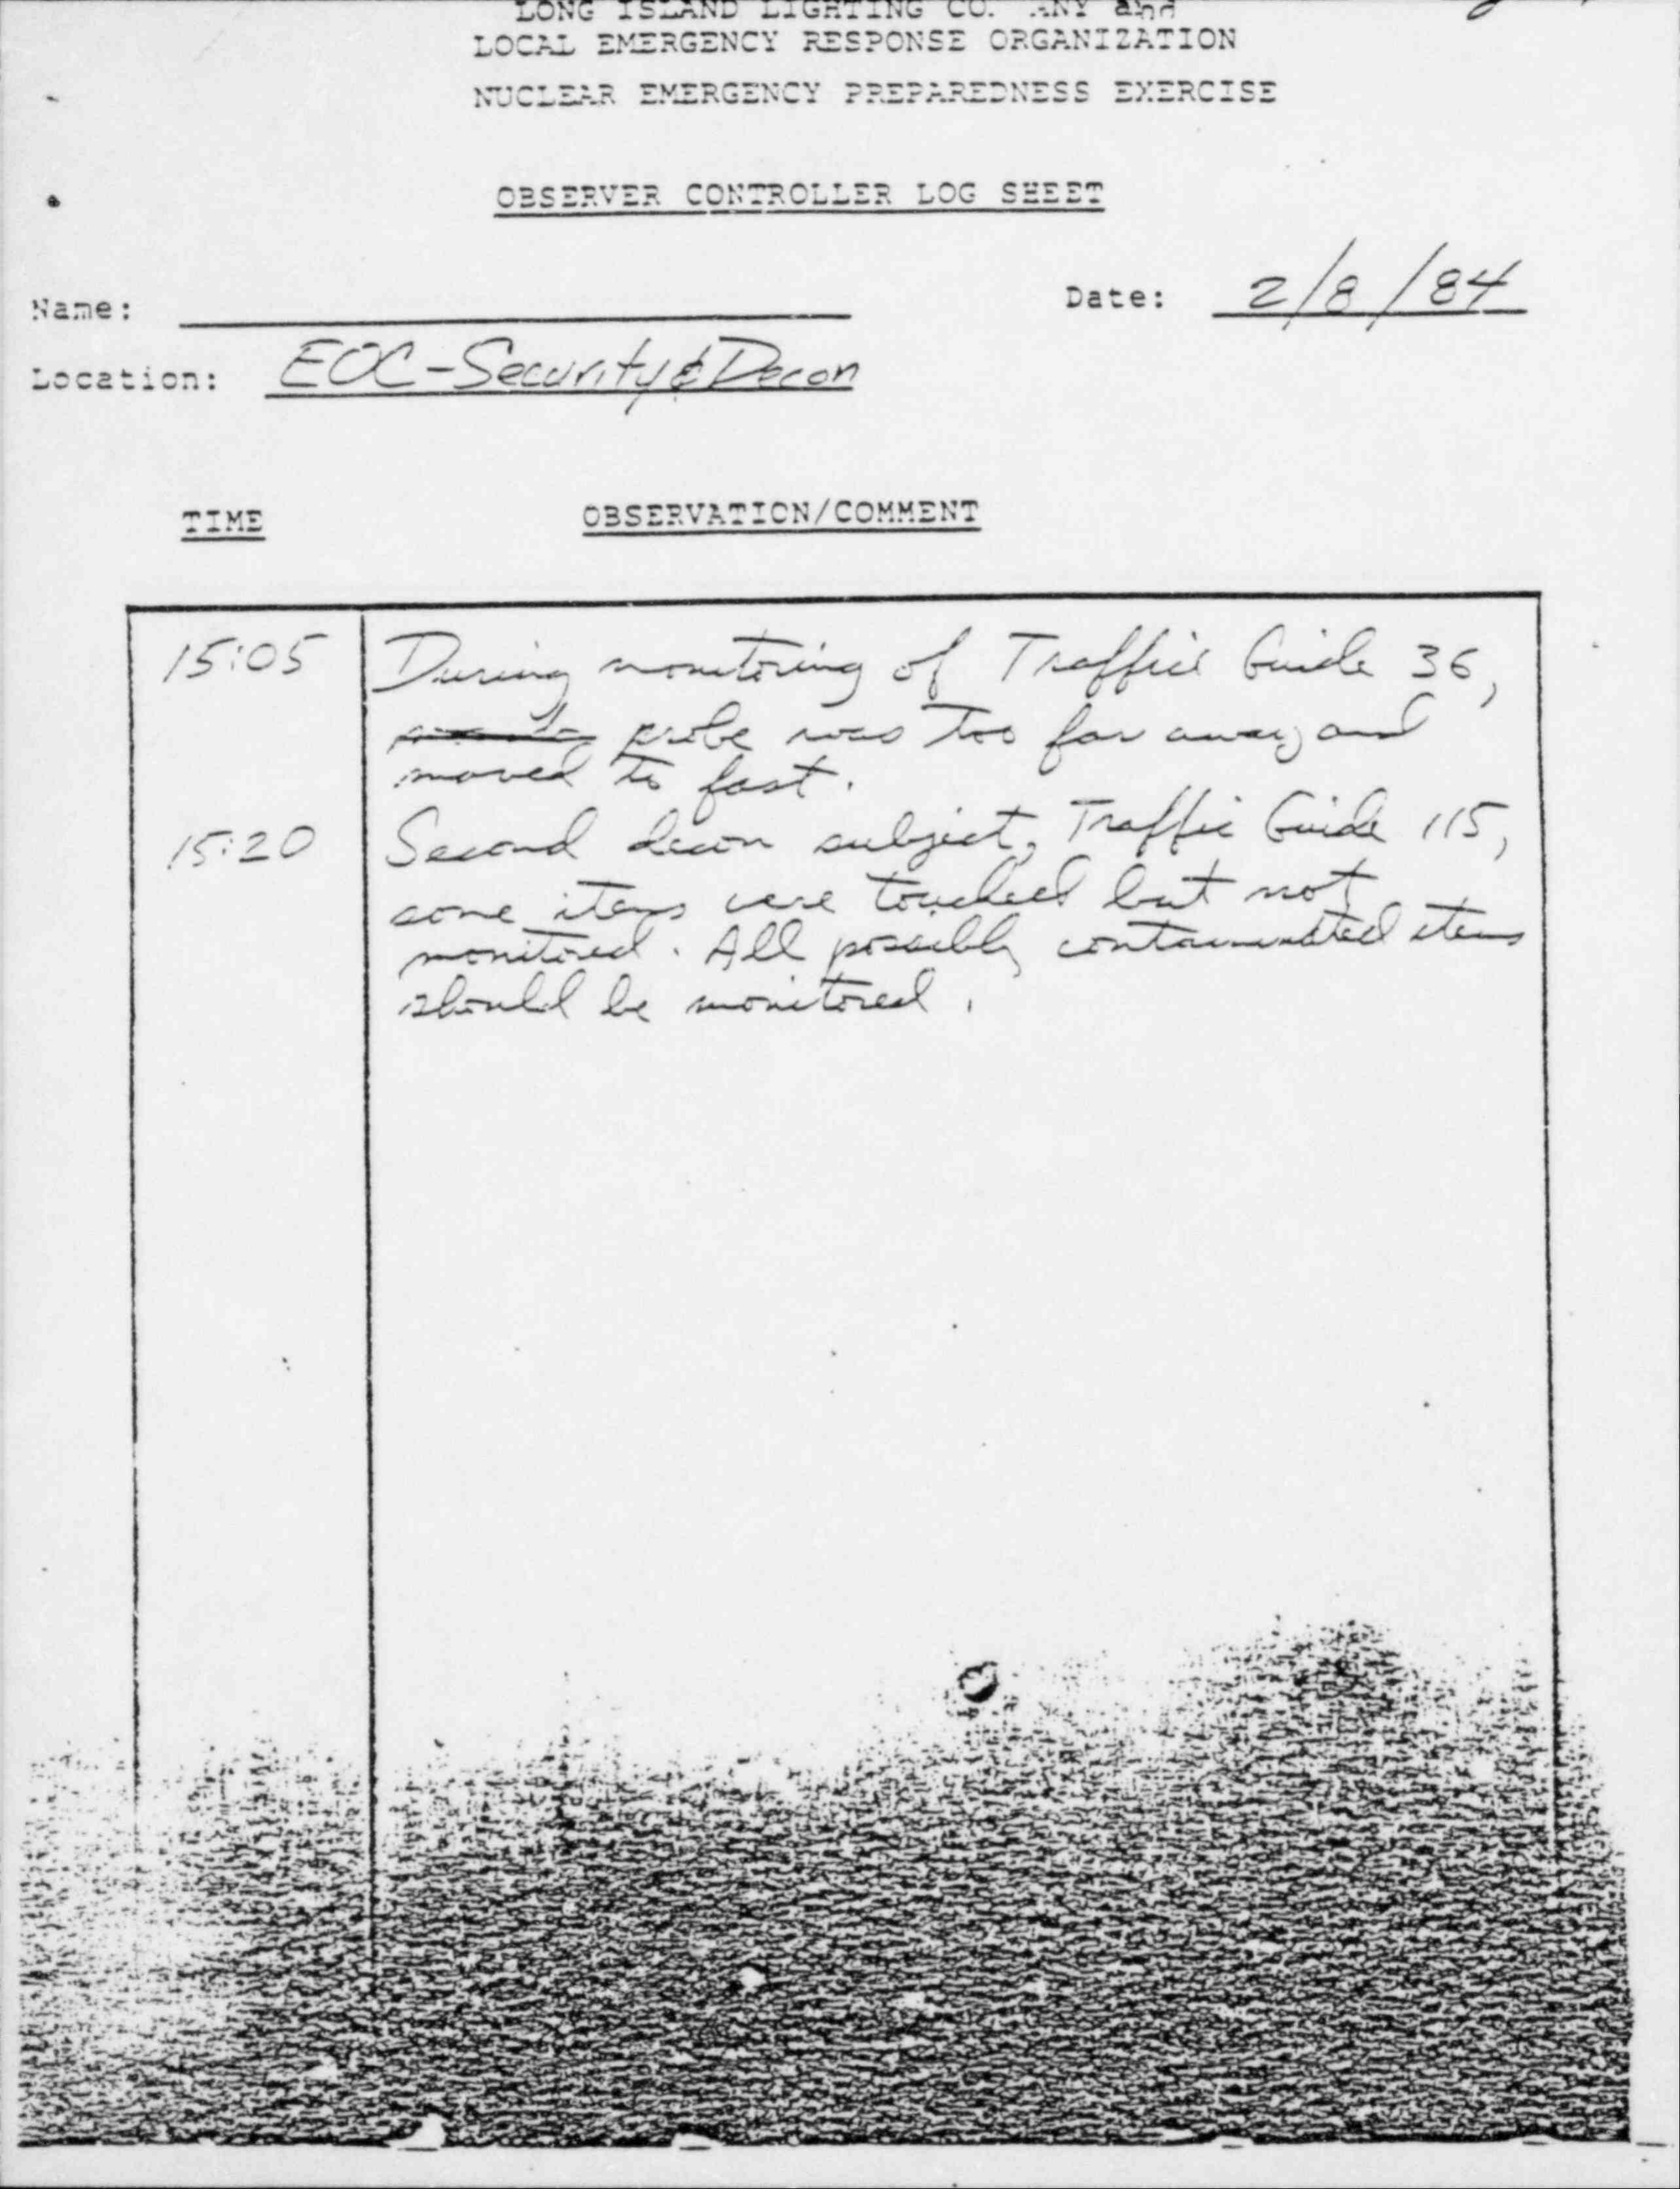 LONG ISLAND LIGHTING CO. ANY and
LOCAL EMERGENCY RESPONSE ORGANIZATION
NUCLEAR EMERGENCY PREPAREDNESS EXERCISE
OBSERVER CONTROLLER LOG SHEET
Name:
Date: 2/8/84
Location: EOC-Security & Decon
TIME OBSERVATION/COMMENT
15:05 During monitoring of Traffic Guide 36,
probe was too far away and
moved to fast.
15:20 Second decon subject, Traffic Guide 115,
some items were touched but not
monitored. All possibly contaminated items
should be monitored.